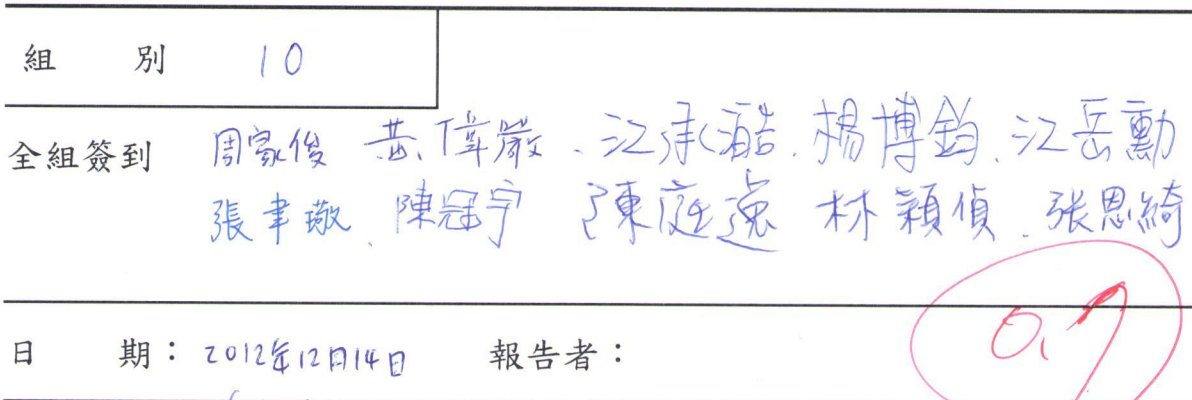 組別 10
全組簽到 周家俊 黃偉嚴、江承澔、楊博鈞、江岳勳
張聿璥、陳冠宇 陳庭逸 林穎偵、張恩綺
日期：2012年12月14日 報告者：
0.9